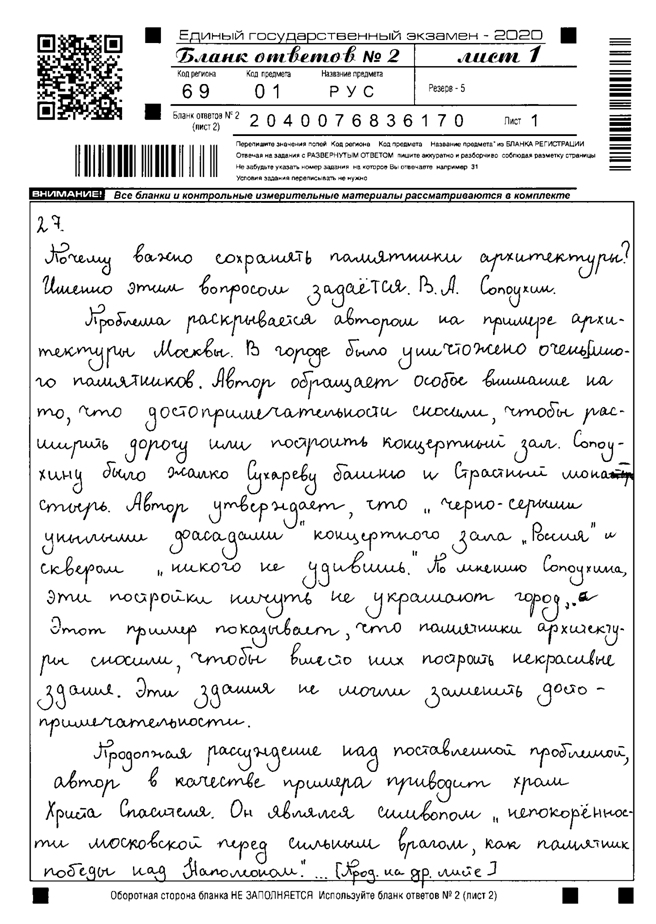 Единый государственный экзамен - 2020
Бланк ответов № 2
лист 1
Код региона
Код предмета
Название предмета
Резерв - 5
69
01
РУС
Бланк ответов № 2
(лист 2)
2040076836170
Лист 1
Перепишите значения полей Код региона Код предмета Название предмета" из БЛАНКА РЕГИСТРАЦИИ
Отвечая на задания с РАЗВЕРНУТЫМ ОТВЕТОМ пишите аккуратно и разборчиво соблюдая разметку страницы
Не забудьте указать номер задания на которое Вы отвечаете например 31
Условия задания переписывать не нужно
ВНИМАНИЕ! Все бланки и контрольные измерительные материалы рассматриваются в комплекте
27.
Почему важно сохранять памятники архитектуры?
Именно этим вопросом задаётся. В.А. Солоухин.
Проблема раскрывается автором на примере архи-
тектуры Москвы. В городе было уничтожено очень|мно-
го памятников. Автор обращает особое внимание на
то, что достопримечательности сносили, чтобы рас-
ширить дорогу или построить концертный зал. Солоу-
хину было жалко Сухареву башню и Страстный мона-
стырь. Автор утверждает, что „черно-серыми
унылыми фасадами" концертного зала „Россия" и
сквером „никого не удивишь." По мнению Солоухина,
эти постройки ничуть не украшают город.
Этот пример показывает, что памятники архитекту-
ры сносили, чтобы вместо них построить некрасивые
здания. Эти здания не могли заменить досто-
примечательности.
Продолжая рассуждение над поставленной проблемой,
автор в качестве примера приводит храм
Христа Спасителя. Он являлся символом „непокорённос-
ти московской перед сильным врагом, как памятник
победы над Наполеоном"... [Прод. на др. листе]
Оборотная сторона бланка НЕ ЗАПОЛНЯЕТСЯ Используйте бланк ответов № 2 (лист 2)